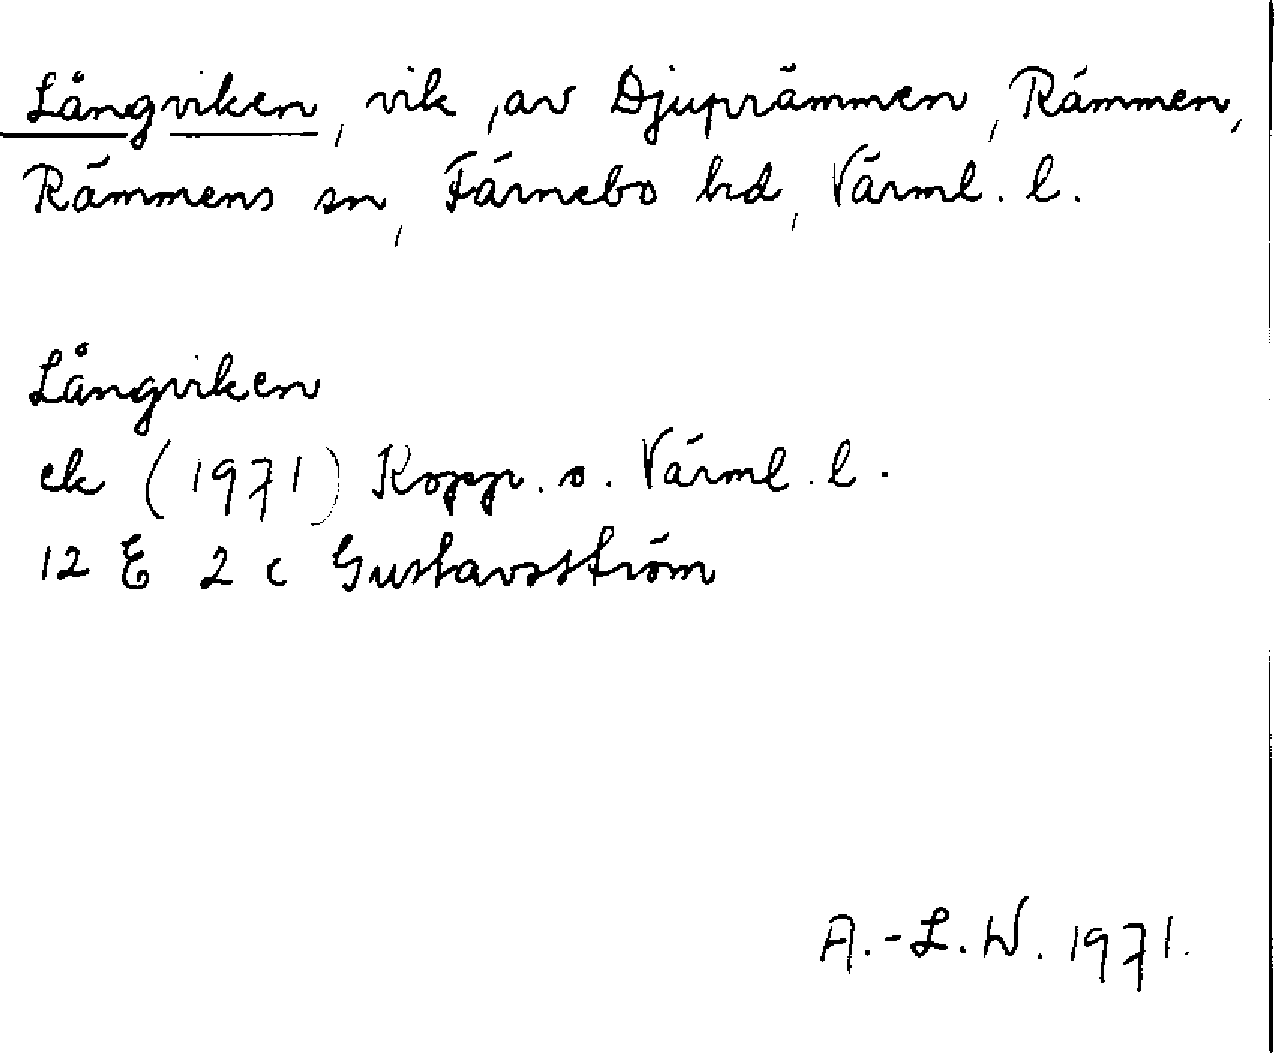 Långviken, vik, av Djuprämmen, Rämmen,
Rämmens sn, Färnebo hd, Värml. l.
Långviken
ek (1971) Kopp. o. Värml. l.
12 E 2 c Gustavsström
A.-L. W. 1971.